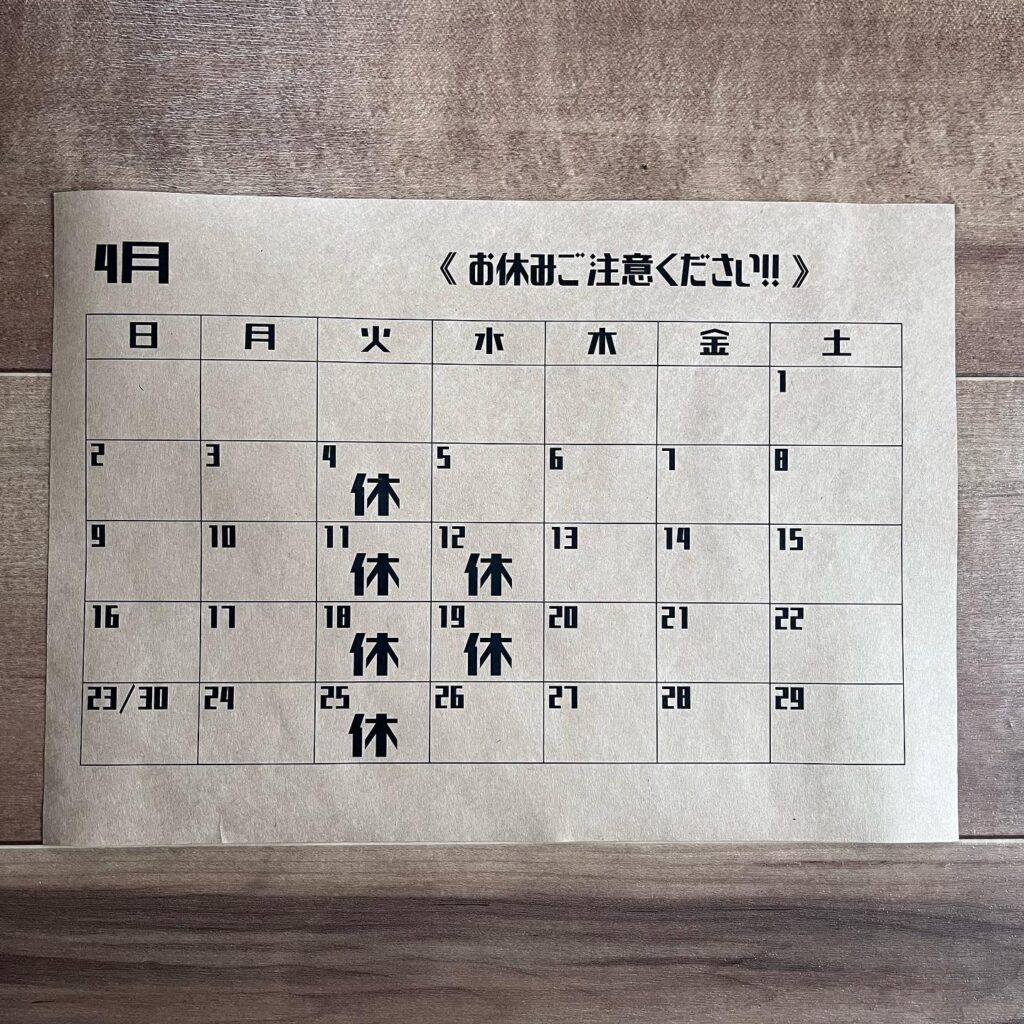 4月
《 お休みご注意ください!! 》
日 月 火 水 木 金 土
1
2 3 4 5 6 7 8
休
9 10 11 12 13 14 15
休 休
16 17 18 19 20 21 22
休 休
23/30 24 25 26 27 28 29
休